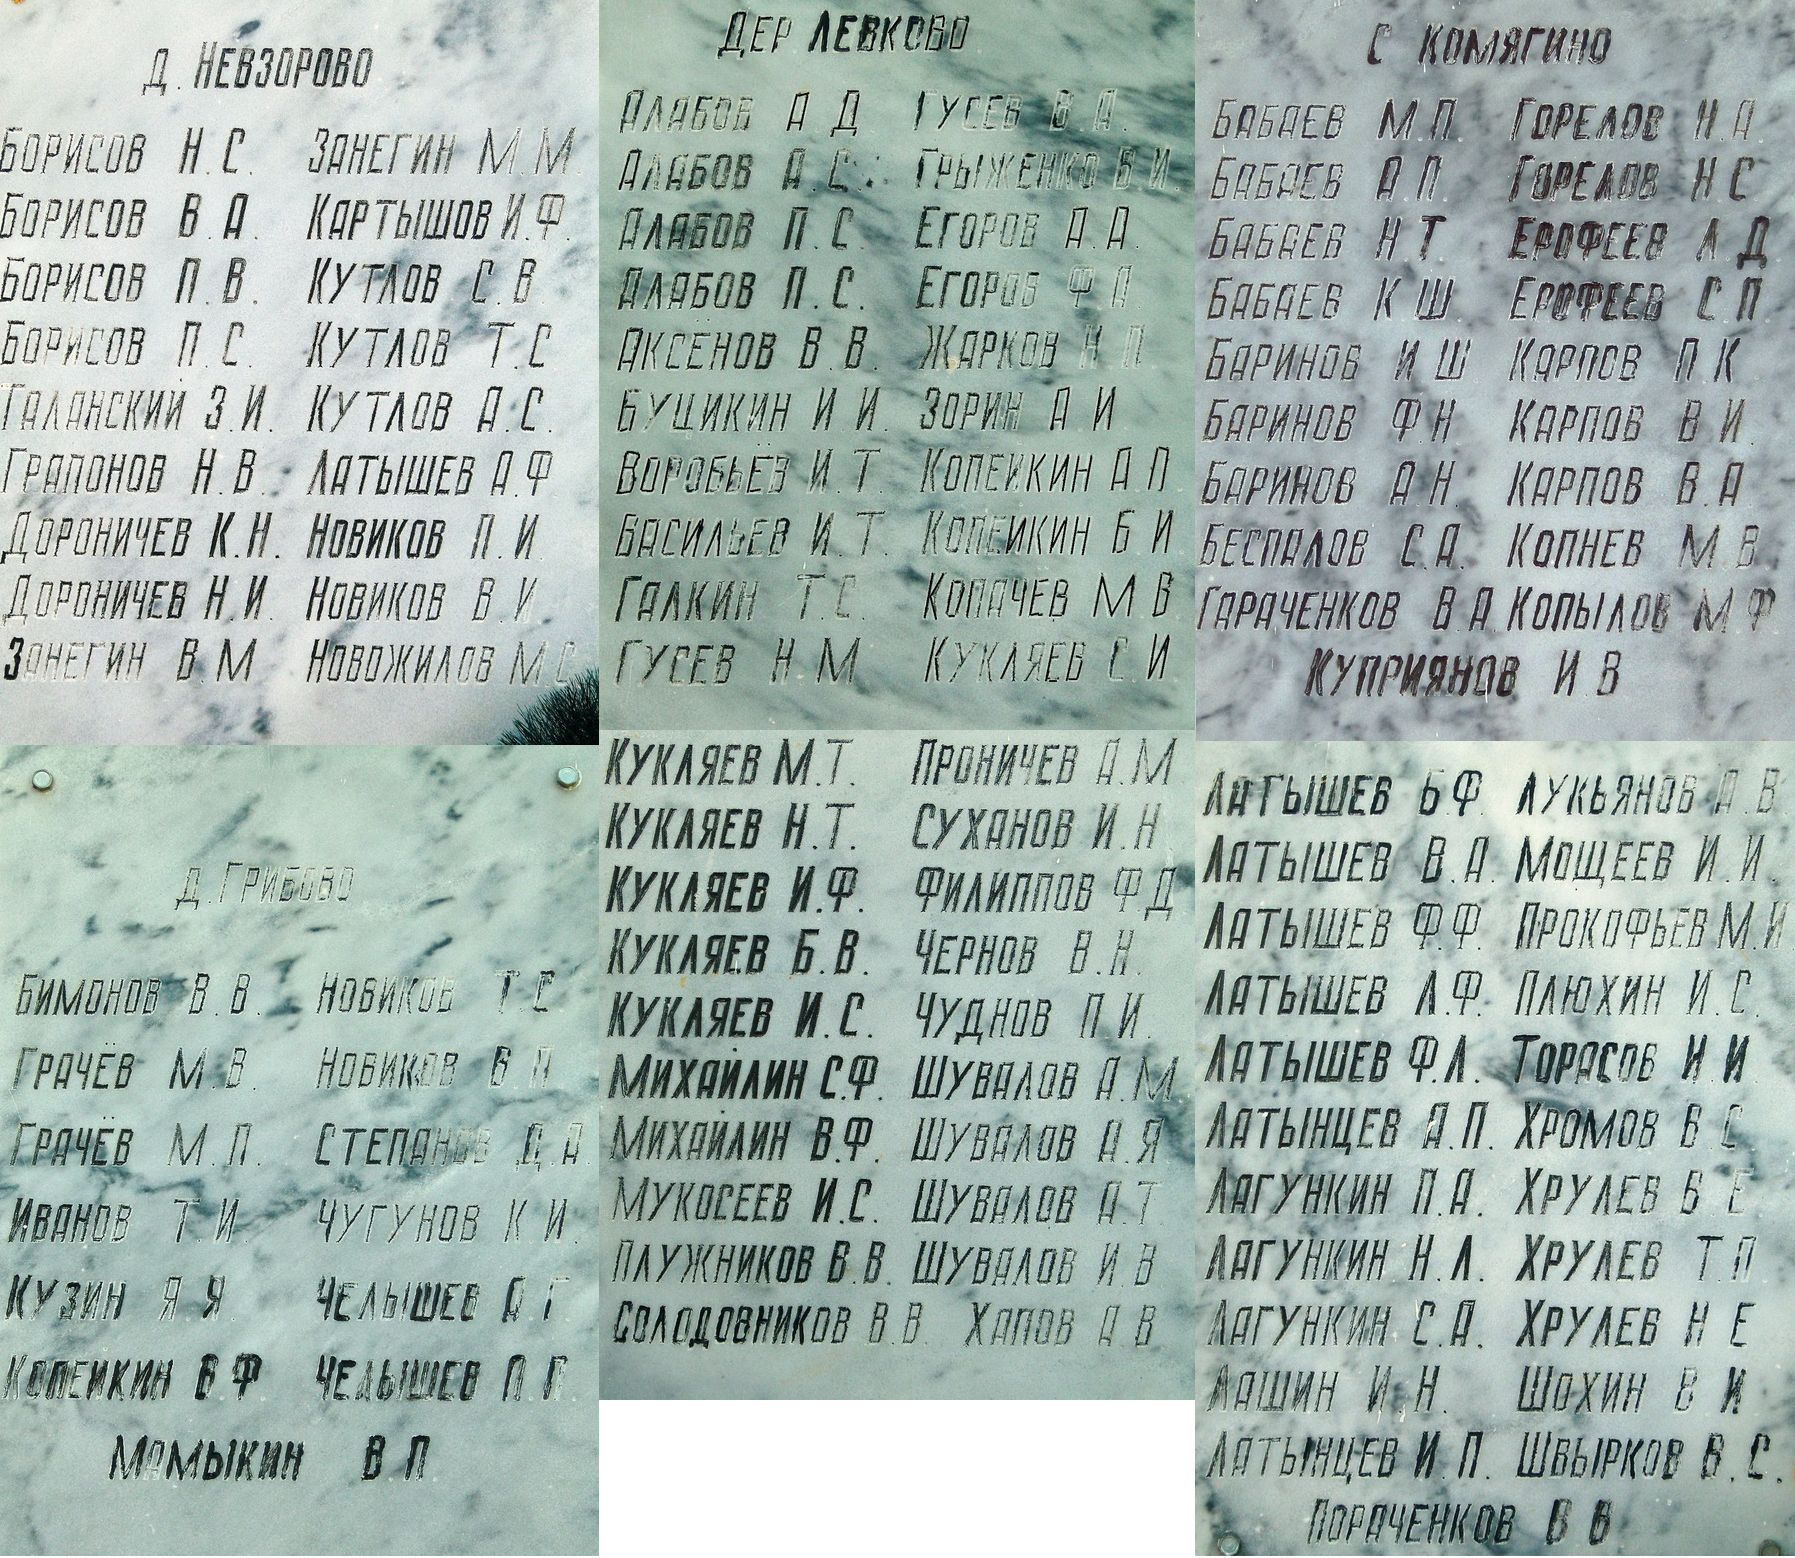 д. Невзорово
Борисов Н.С. Занегин М.М.
Борисов В.А. Картышов И.Ф.
Борисов П.В. Кутлов С.В.
Борисов П.С. Кутлов Т.С
Галанский З.И. Кутлов А.С.
Грапонов Н.В. Латышев А.Ф
Дороничев К.Н. Новиков П.И.
Дороничев Н.И Новиков В.И
Занегин В.М Новожилов М.С
д. Грибово
Бимонов В.В. Новиков Т.С
Грачёв М.В. Новиков В.П
Грачёв М.П. Степанов Д.А.
Иванов Т.И. Чугунов К И.
Кузин Я.Я. Челышев А Г
Копейкин В.Ф Челышев П.Г.
Мамыкин В.П
Дер Левково
Алябов А Д Гусев В.А.
Алябов А.С. Грыженко В.И.
Алябов П.С. Егоров А.А.
Алябов П.С. Егоров Ф А
Аксёнов В.В. Жарков Н П
Буцикин И И. Зорин А И
Воробьёв И.Т. Копейкин А П
Васильев И.Т. Копейкин Б И
Галкин Т.С. Копачев М В
Гусев Н М Кукляев С И
Кукляев М.Т. Проничев А.М
Кукляев Н.Т. Суханов И.Н
Кукляев И.Ф. Филиппов Ф Д
Кукляев Б.В. Чернов В.Н.
Кукляев И.С. Чуднов П И.
Михайлин С.Ф. Шувалов А.М
Михайлин В.Ф. Шувалов А.Я
Мукосеев И.С. Шувалов А.Т
Плужников В.В. Шувалов И.В
Солодовников В.В. Хапов А В
с Комягино
Бабаев М.П. Горелов Н.А
Бабаев А П. Горелов Н С
Бабаев Н.Т. Ерофеев Л Д
Бабаев К Ш. Ерофеев С.П.
Баринов И Ш Карпов П К
Баринов Ф.Н Карпов В И.
Баринов А.Н Карпов В.А
Беспалов С.А. Копнев М В
Гараченков В.А. Копылов М Ф
Куприянов И В
Латышев Б Ф. Лукьянов А.В.
Латышев В.А. Мощеев И.И.
Латышев Ф.Ф. Прокофьев М.И
Латышев Л.Ф. Плюхин И.С.
Латышев Ф.Л. Торасов И.И.
Латынцев А.П. Хромов В С
Лагункин П.А. Хрулев Б Е
Лагункин Н.Л. Хрулев Т.П
Лагункин С.А. Хрулев Н Е
Лашин И.Н. Шохин В И
Латынцев И.П. Швырков В.С.
Пораченков В В